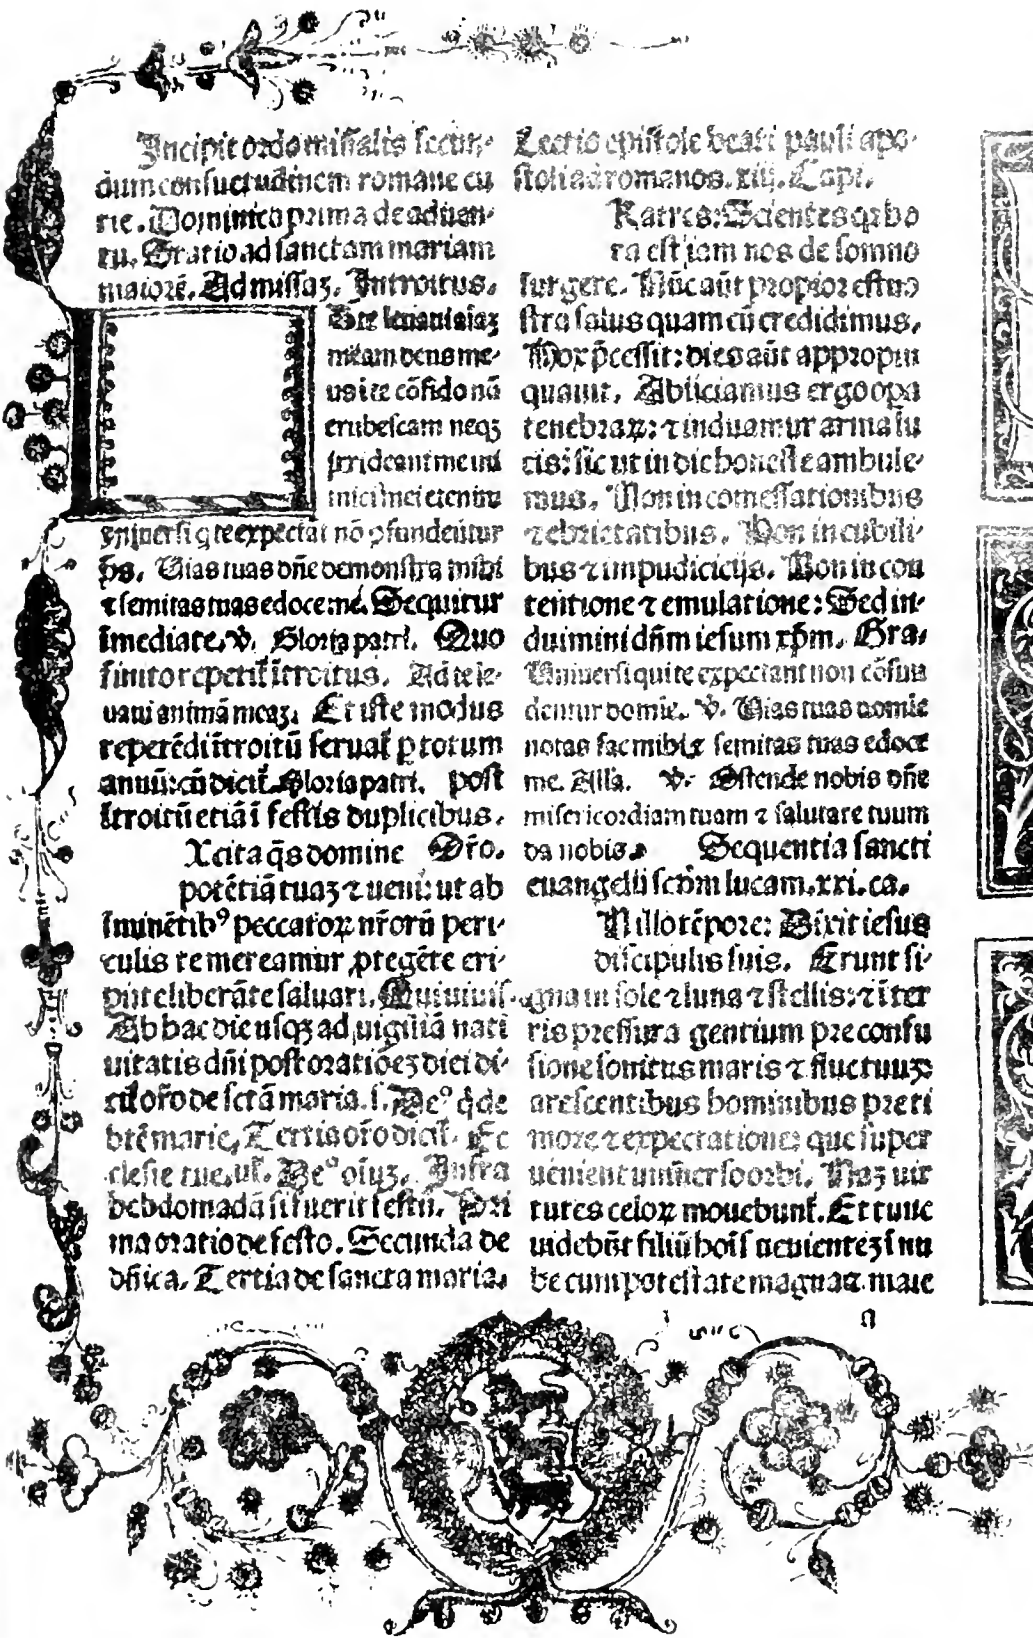 Incipit ordo missalis secun-
dum consuetudinem romane cu
rie. Dominica prima de aduen-
tu. Statio ad sanctam mariam
maiorẽ. Ad missaʒ. Introitus.
D te leuaui aiaʒ
meam deus me-
us i te cõfido nõ
erubescam neqʒ
irrideant me ini
mici mei etenim
vniuersi q te expectãt nõ ꝯfundentur
p̃s. Uias tuas dñe demonstra mihi
⁊ semitas tuas edoce me. Sequitur
ĩmediate. v̓. Gloria patri. Quo
finito repetit̃ ĩtroitus. Ad te le-
uaui animã meaʒ. Et iste modus
repetẽdi ĩtroitũ seruat̃ ꝑ totum
annũ: cũ dicit̃. Gloria patri. post
ĩtroitũ etiã ĩ festis duplicibus.
Xcita q̃s domine Or̃o.
potẽtiã tuaʒ ⁊ ueni: ut ab
ĩminẽtibꝰ peccatoꝝ nr̃orũ peri-
culis te mereamur ꝓtegẽte eri-
pi te liberãte saluari. Qui uiuis.
Ab hac die usqʒ ad uigiliã nati
uitatis dñi post oratiõeʒ diei di-
cit̃ or̃o de sctã maria. s. Deꝰ q̃ de
btẽ marie. Tertia or̃o dicit̃. Ec
clesie tue. ul̃. Deꝰ oĩuʒ. Infra
hebdomadã si fuerit festũ. Pri
ma oratio de festo. Secunda de
dñica. Tertia de sancta maria.
Lectio epistole beati pauli apo-
stoli ad romanos. xiij. Capi.
Ratres: Scientes qꝛ ho
ra est iam nos de somno
surgere. Nũc aũt propior est no
stra salus quam cũ credidimus.
Nox p̃cessit: dies aũt appropin
quauit. Abiiciamus ergo opa
tenebraꝝ: ⁊ induamur arma lu
cis: sic ut in die honeste ambule-
mus. Non in comessationibus
⁊ ebrietatibus. Non in cubili-
bus ⁊ impudicicijs. Non in con
tentione ⁊ emulatione: Sed in-
duimini dñm iesum xp̃m. Gra.
Uniuersi qui te expectant non cõfun
dentur domie. v̓. Uias tuas domie
notas fac mihi ⁊ semitas tuas edoce
me. Alla. v̓. Ostende nobis dñe
misericordiam tuam ⁊ salutare tuum
da nobis. Sequentia sancti
euangelii scd̃m lucam. xxi. ca.
N illo tẽpore: Dixit iesus
discipulis suis. Erunt si-
gna in sole ⁊ luna ⁊ stellis: ⁊ ĩ ter
ris pressura gentium pre confu
sione sonitus maris ⁊ fluctuuʒ:
arescentibus hominibus pre ti
more ⁊ expectatione: que super
uenient uniuerso orbi. Naʒ uir
tutes celoꝝ mouebunt̃. Et tunc
uidebũt filiũ hoĩs uenienteʒ ĩ nu
be cum potestate magna ⁊ maie
a